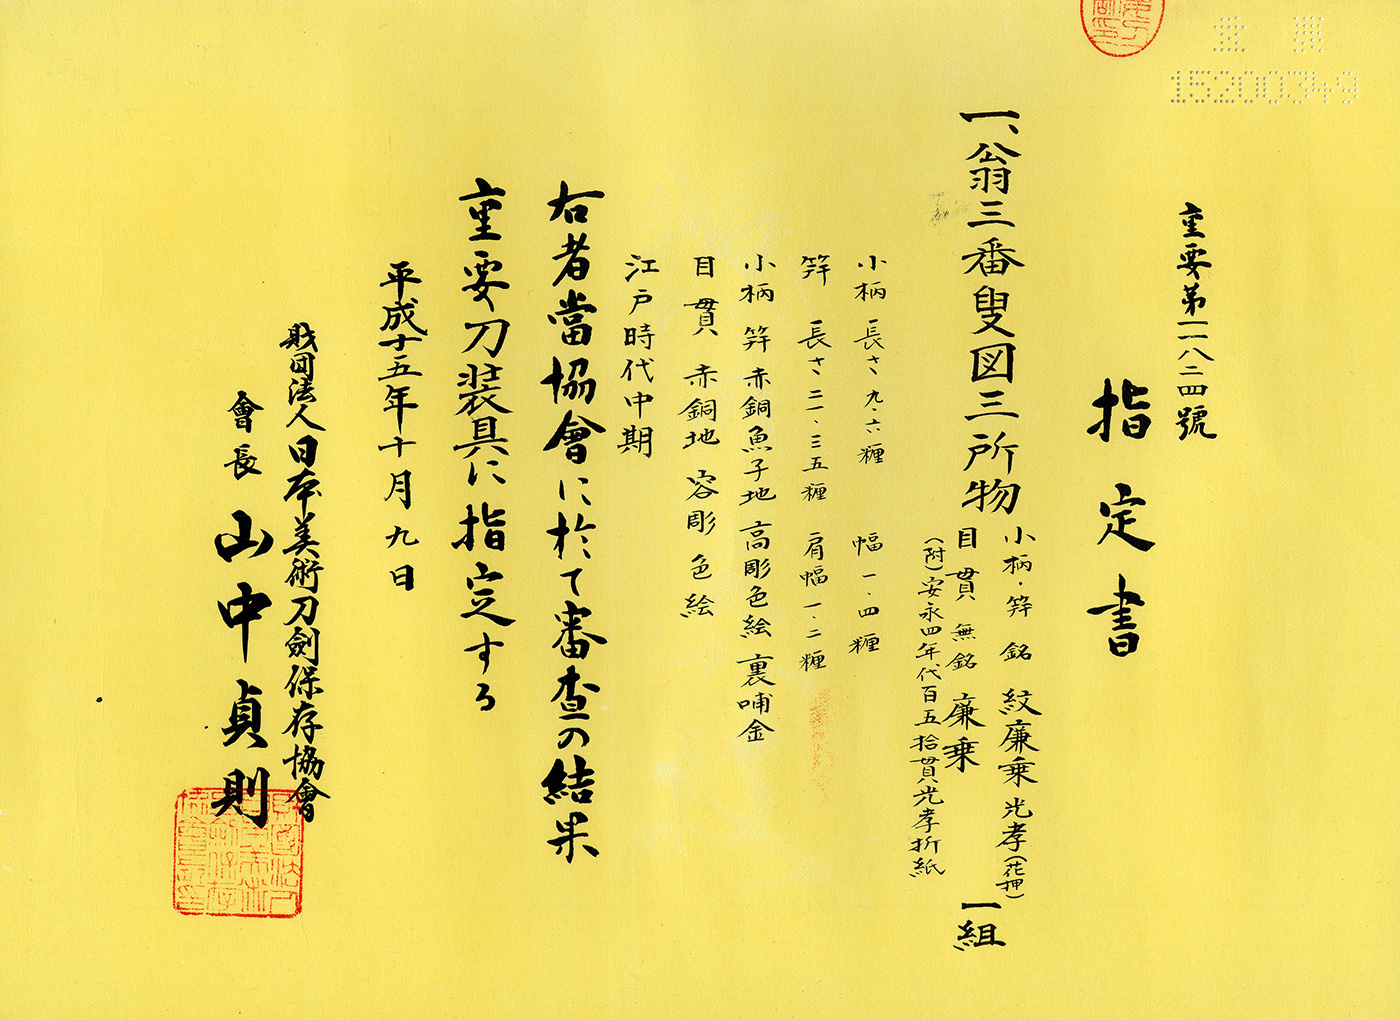 15200349
重要第一一八二四號
指定書
一、翁三番叟図三所物 小柄・笄 銘 紋廉乗 光孝(花押)
目貫 無銘 廉乗
(附)安永四年代百五拾貫光孝折紙
一組
小柄 長さ 九・六糎 幅 一・四糎
笄 長さ 二一・三五糎 肩幅 一・二糎
小柄 笄 赤銅魚子地 高彫色絵 裏哺金
目貫 赤銅地 容彫 色絵
江戸時代中期
右者當協會に於て審査の結果
重要刀装具に指定する
平成十五年十月九日
財団法人日本美術刀劍保存協會
會長 山中貞則